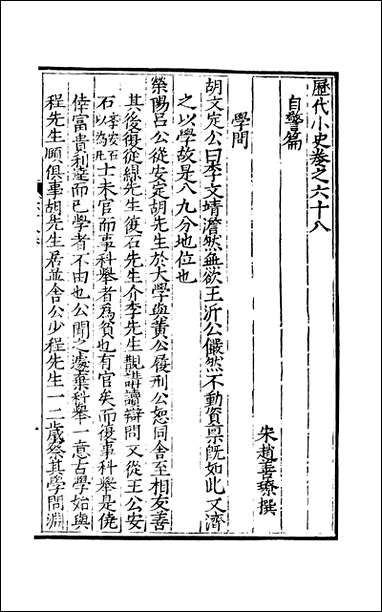 歷代小史卷之六十八
自警篇
宋趙善璙撰
學問
胡文定公曰李文靖澹然無欲王沂公儼然不動資稟旣如此又濟
之以學故是八九分地位也
滎陽呂公從安定胡先生於大學與黃公履邢公恕同舍至相友善
其後復從孫先生復石先生介李先生覯講讀辯問又從王公安
石李安石以為凡士未官而事科舉者為貧也有官矣而復事科舉是僥
倖富貴利達而已學者不由也公聞之遽棄科舉一意古學始與
程先生頤俱事胡先生居並舍公少程先生一二歲察其學問淵